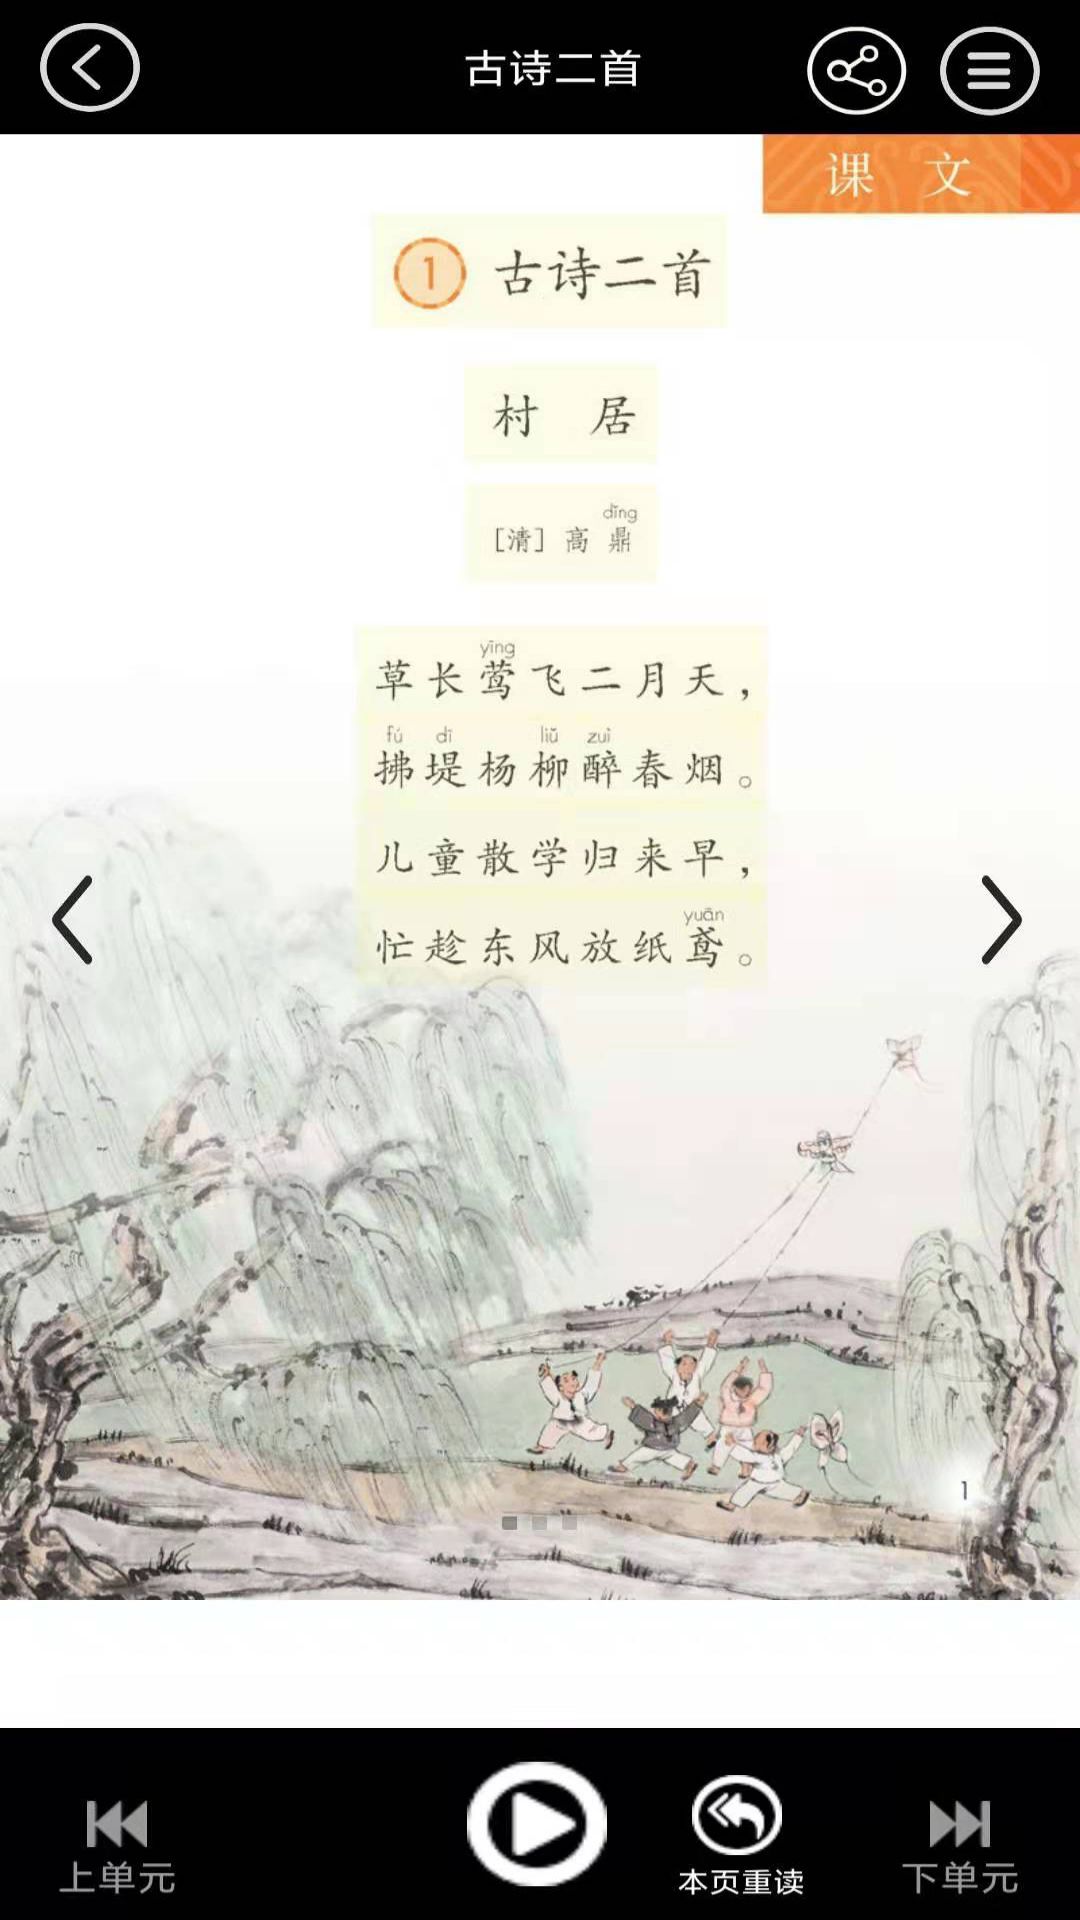 古诗二首
课 文
1 古诗二首
村 居
dǐng
[清] 高 鼎
yīng
草长莺飞二月天，
fú dī liǔ zuì
拂堤杨柳醉春烟。
儿童散学归来早，
yuān
忙趁东风放纸鸢。
1
上单元
本页重读
下单元